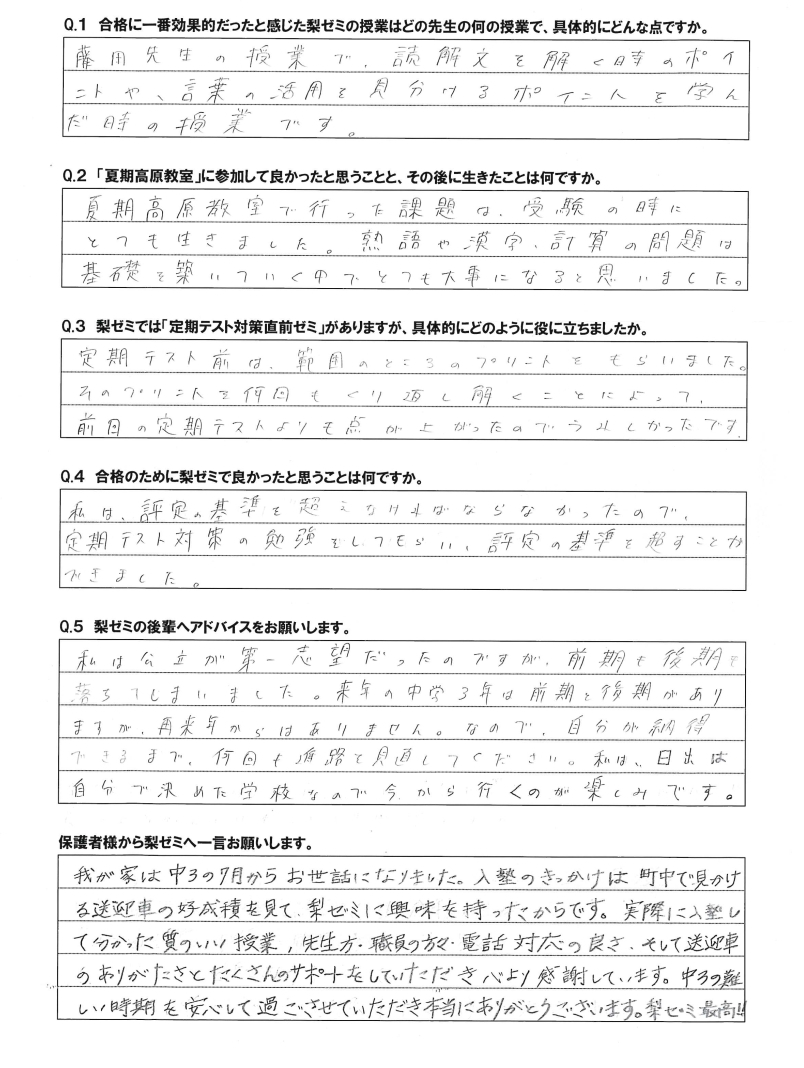 Q.1 合格に一番効果的だったと感じた梨ゼミの授業はどの先生の何の授業で、具体的にどんな点ですか。
藤田先生の授業で、読解文を解く時のポイ
ントや、言葉の活用を見分けるポイントを学ん
だ時の授業です。
Q.2 「夏期高原教室」に参加して良かったと思うことと、その後に生きたことは何ですか。
夏期高原教室で行った課題は、受験の時に
とても生きました。熟語や漢字、計算の問題は
基礎を築いていく中でとても大事になると思いました。
Q.3 梨ゼミでは「定期テスト対策直前ゼミ」がありますが、具体的にどのように役に立ちましたか。
定期テスト前は、範囲のところのプリントをもらいました。
そのプリントを何回もくり返し解くことによって、
前回の定期テストよりも点が上がったのでうれしかったです。
Q.4 合格のために梨ゼミで良かったと思うことは何ですか。
私は、評定の基準を超えなければならなかったので、
定期テスト対策の勉強をしてもらい、評定の基準を超すことが
できました。
Q.5 梨ゼミの後輩へアドバイスをお願いします。
私は公立が第一志望だったのですが、前期も後期も
落ちてしまいました。来年の中学3年は前期と後期があり
ますが、再来年からはありません。なので、自分が納得
できるまで、何回も進路を見直してください。私は、日出は
自分で決めた学校なので今から行くのが楽しみです。
保護者様から梨ゼミへ一言お願いします。
我が家は中3の7月からお世話になりました。入塾のきっかけは町中で見かけ
る送迎車の好成積を見て、梨ゼミに興味を持ったからです。実際に入塾し
て分かった質のいい授業，先生方・職員の方々・電話対応の良さ、そして送迎車
のありがたさとたくさんのサポートをしていただき心より感謝しています。中3の難し
い時期を安心して過ごさせていただき本当にありがとうございます。梨ゼミ最高!!